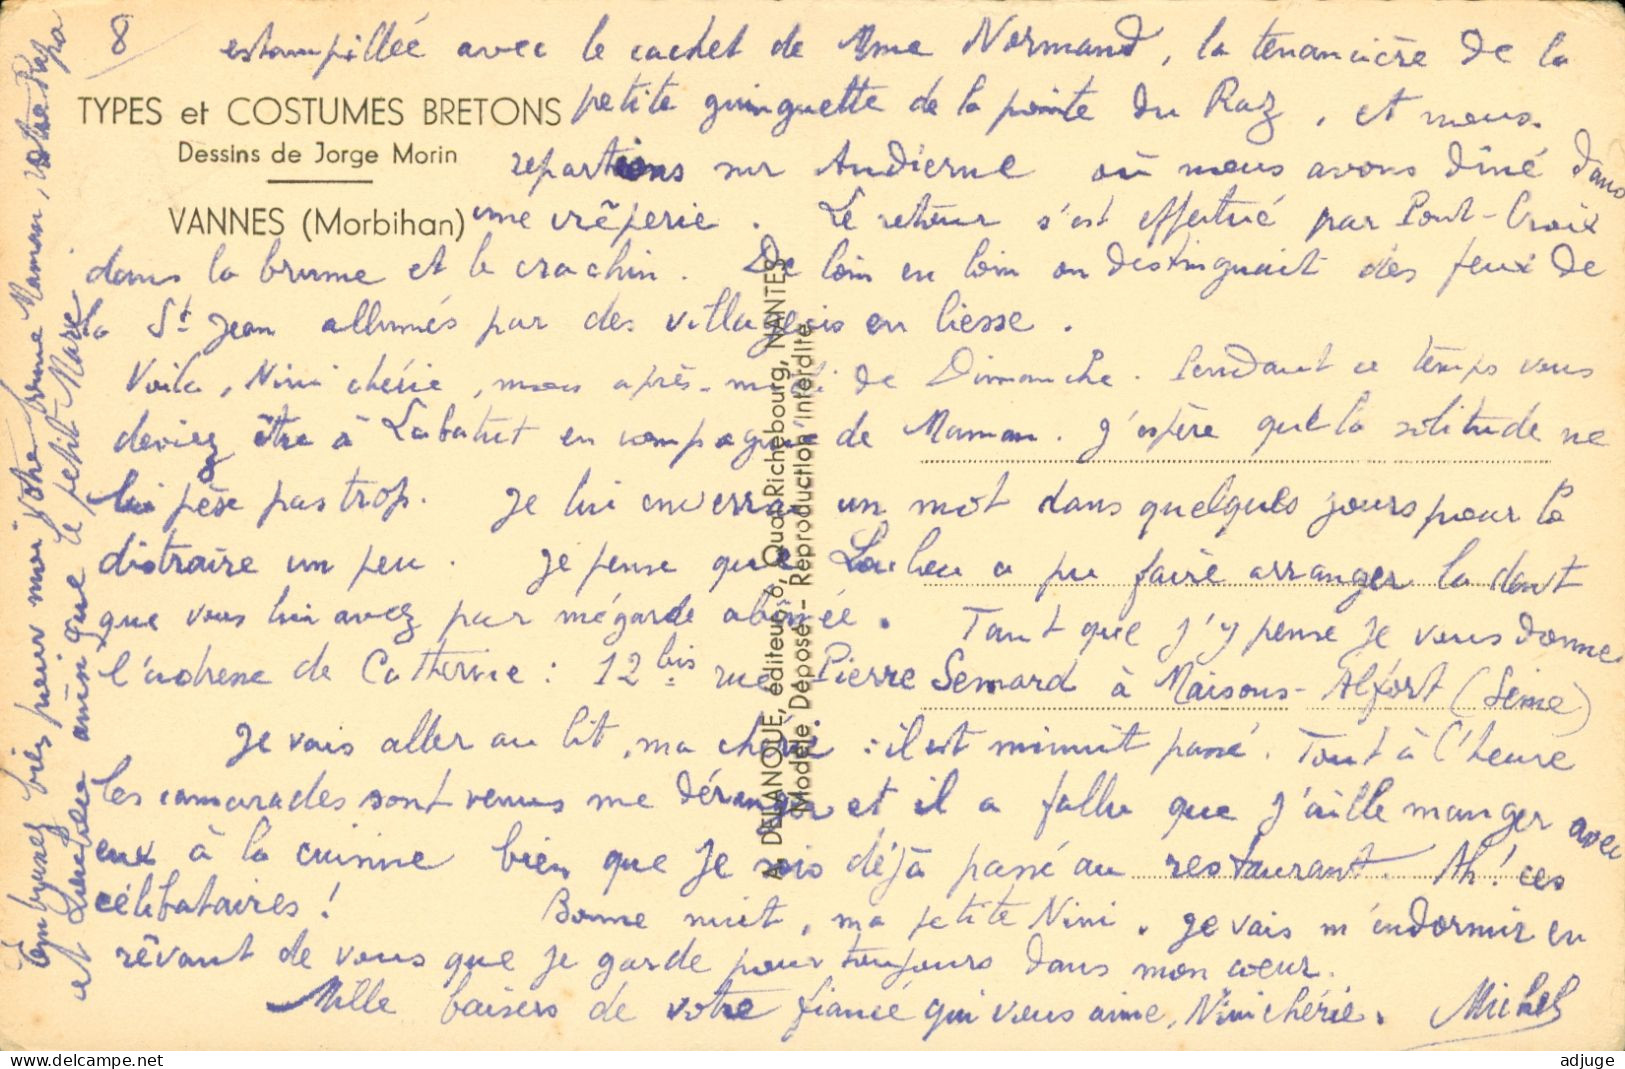 8
estampillée avec le cachet de Mme Normand, la tenancière de la
TYPES et COSTUMES BRETONS
petite guinguette de la pointe du Raz, et nous
Dessins de Jorge Morin
repartions sur Audierne où nous avons dîné dans
VANNES (Morbihan)
une crêperie. Le retour s'est effectué par Pont-Croix
dans la brume et le crachin. De loin en loin on distinguait des feux de
la St Jean allumés par des villageois en liesse.
Voilà, Nini chérie, mon après-midi de Dimanche. Pendant ce temps vous
deviez être à Labatut en compagnie de Maman. J'espère que la solitude ne
lui pèse pas trop. Je lui enverrai un mot dans quelques jours pour la
distraire un peu. Je pense que a pu faire arranger la dent
que vous lui avez par mégarde abîmée. Tant que j'y pense je vous donne
l'adresse de Catherine : 12 bis rue Pierre Semard à Maisons-Alfort (Seine)
Je vais aller au lit, ma chérie : il est minuit passé. Tout à l'heure
les camarades sont venus me déranger et il a fallu que j'aille manger avec
eux à la cuisine bien que je sois déjà passé au restaurant. Ah! ces
célibataires! Bonne nuit, ma petite Nini. Je vais m'endormir en
rêvant de vous que je garde pour toujours dans mon cœur.
Mille baisers de votre fiancé qui vous aime, Nini chérie. Michel
Embrassez bien pour moi votre bonne Maman, votre Papa
et ainsi que le petit Marc
A. DELANOUE, éditeur, 6, Quai Richebourg, NANTES
Modèle Déposé - Reproduction Interdite
delcampe.net
adjuge